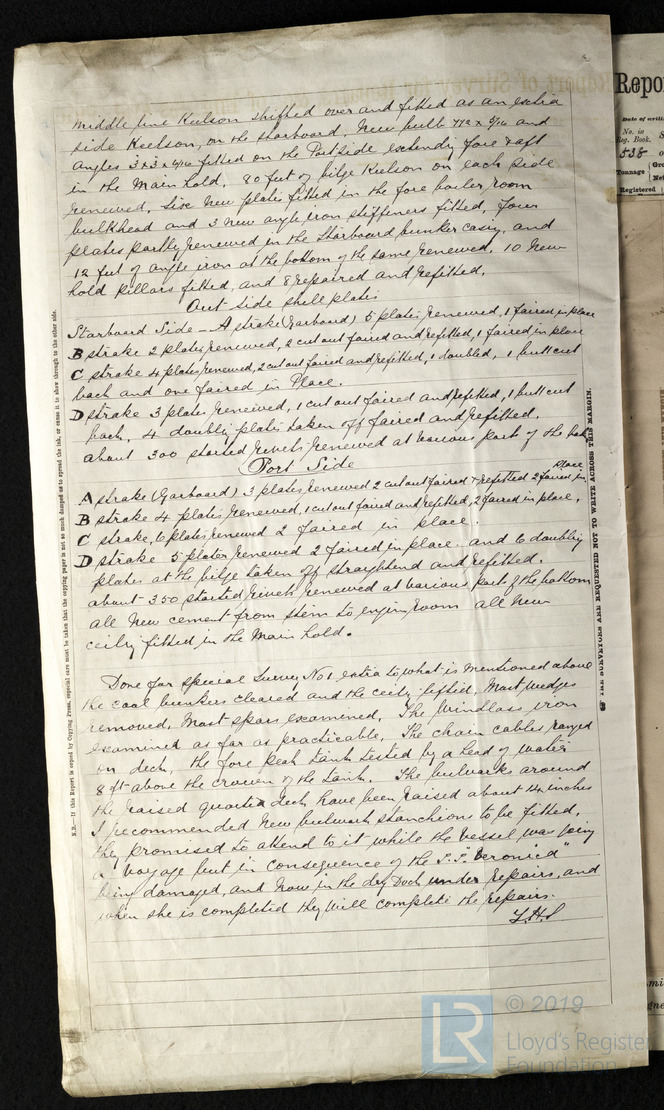 middle line Keelson shifted over and fitted as an extra
side Keelson, on the starboard. New bulb 7½ x 9/16 and
angles 3 x 3 x 6/16 fitted on the Port side extending fore & aft
in the Main hold. 80 feet of bilge Keelson on each side
renewed. Six New plates fitted in the fore boiler room
bulkhead and 3 new angle iron stiffeners fitted, four
plates partly renewed in the starboard bunker casing, and
12 feet of angle iron at the bottom of the same renewed. 10 New
hold pillars fitted, and 8 repaired and refitted.
Out side shell plates
Starboard Side - A strake (Garboard) 5 plates renewed, 1 faired in place
B strake 2 plates renewed, 2 cut out faired and refitted, 1 faired in place
C strake 4 plates renewed, 2 cut out faired and refitted, 1 doubled, 1 butt cut
back and one faired in Place.
D strake 3 plates renewed, 1 cut out faired and refitted, 1 butt cut
back, 4 doubling plates taken off faired and refitted.
about 300 started rivets renewed at various part of the
Port Side
A strake (Garboard) 3 plates renewed 2 cut out faired & refitted 2 faired in place
B strake 4 plates renewed, 1 cut out faired and refitted, 2 faired in place.
C strake, 6 plates renewed 2 faired in place.
D strake 5 plates renewed 2 faired in place. and 6 doubling
plates at the bilge taken off straightend and refitted.
about 350 started rivets renewed at various part of the bottom
all New cement from stem to engine room all New
ceiling fitted in the Main hold.
Done for special Survey No 1 extra to what is mentioned above
the coal bunkers cleared and the ceiling lifted, Mast wedges
removed, Mast spars examined. The Windlass iron
examined as far as practicable, The chain cables ranged
on deck, the fore peak tank tested by a head of water
8 ft above the crown of the tank. The bulwarks around
the raised quarter deck have been raised about 14 inches
I recommended New bulwark stanchions to be fitted.
they promised to attend to it while the vessel was
voyage but in consequence of the S.S. "Veronica"
being damaged, and now in the dry Dock under repairs, and
when she is completed they will complete the repairs.
N.B.—If this Report is copied by Copying Press, especial care must be taken that the copying paper is not so much damped as to spread the ink, or cause it to show through to the other side.
THE SURVEYORS ARE REQUESTED NOT TO WRITE ACROSS THIS MARGIN.
Repo
No. in
Reg. Book.
538
Tonnage
Gro
Net
Registered
LR
© 2019
Lloyd's Register
Foundation